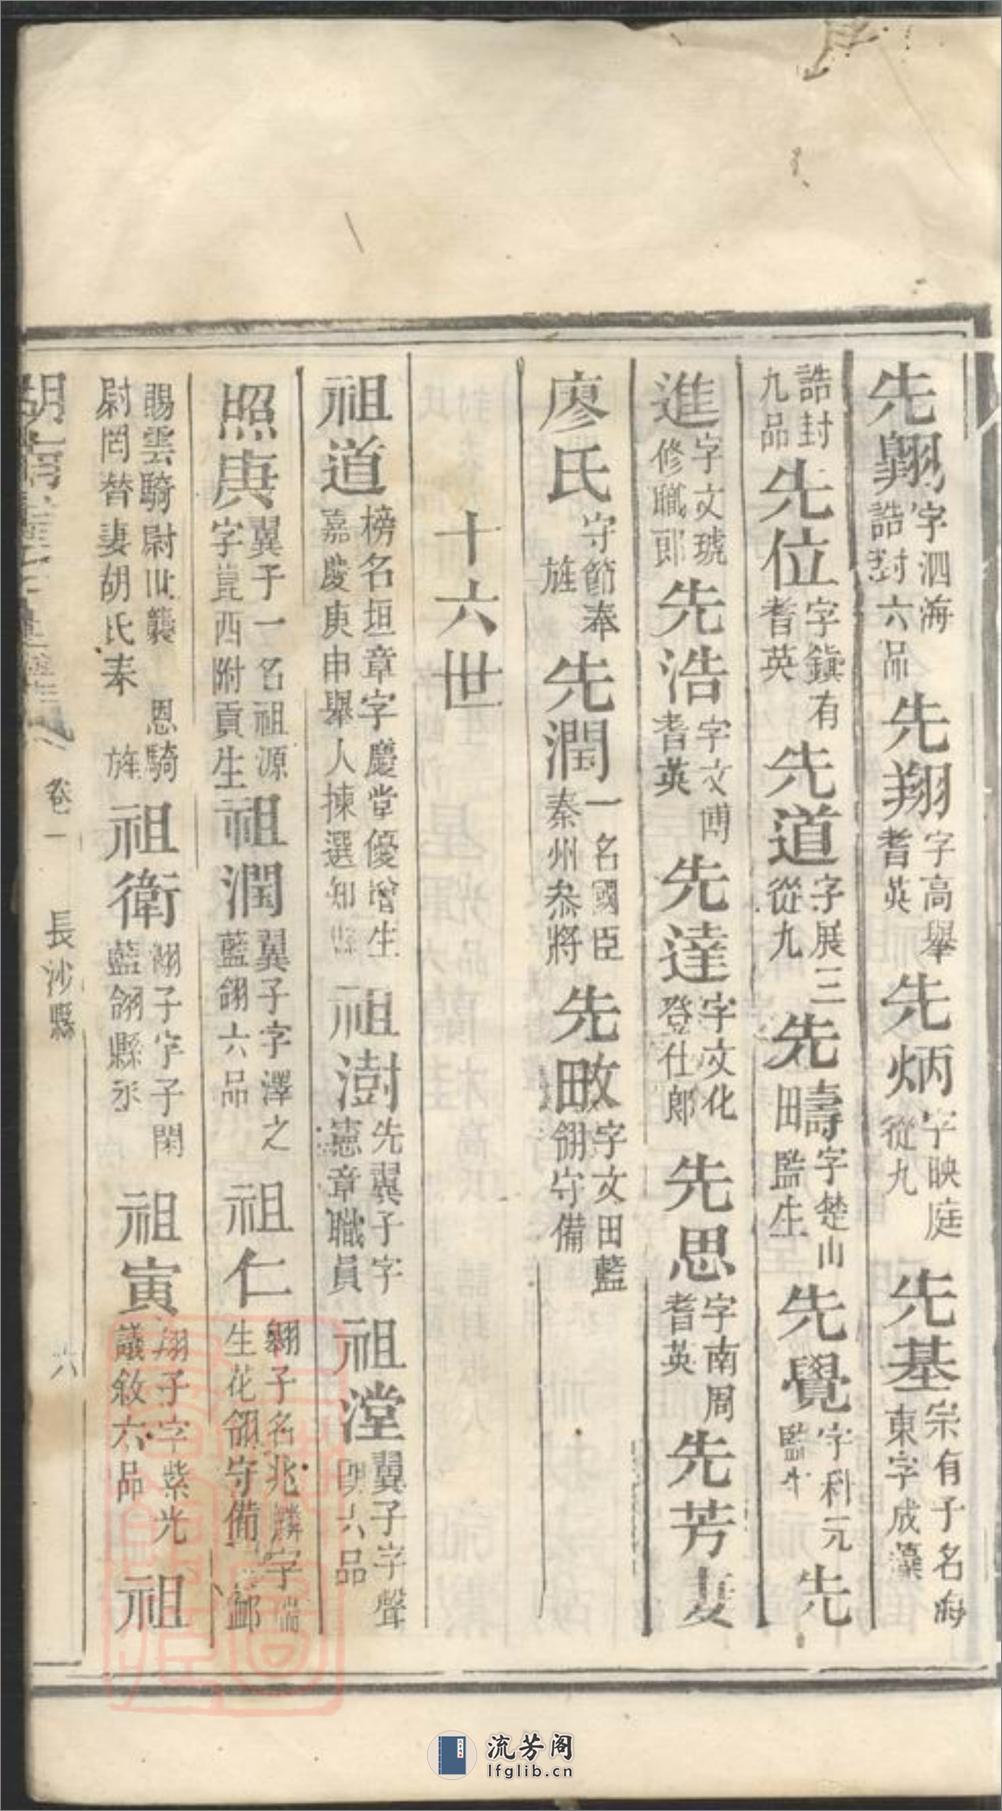 先翱字泗海誥封六品 先翔字高舉耆英 先炳字映庭從九 先基宗有子名海東字成藻
誥封九品 先位字鎭有耆英 先道字展三從九 先壽字楚山田監生 先覺字科元監生 先
進字文琥修職郎 先浩字文博耆英 先達字文化登仕郎 先思字南周耆英 先芳妻
廖氏守節奉旌 先潤一名國臣秦州叅將 先畋字文田藍翎守備
十六世
祖道榜名垣章字慶堂優增生嘉慶庚申舉人揀選知縣 祖澍先翼子字憲章職員 祖瀅翼子字聲六品
照庚翼子一名祖源字崑西附貢生 祖潤翼子字澤之藍翎六品 祖仁翱子名兆麟字生花翎守備
賜雲騎尉世襲恩騎尉罔替妻胡氏奉旌 祖衛翱子字子閑藍翎縣丞 祖寅翔子字紫光議敘六品 祖
卷一 長沙縣 六
流芳阁
lfglib.cn